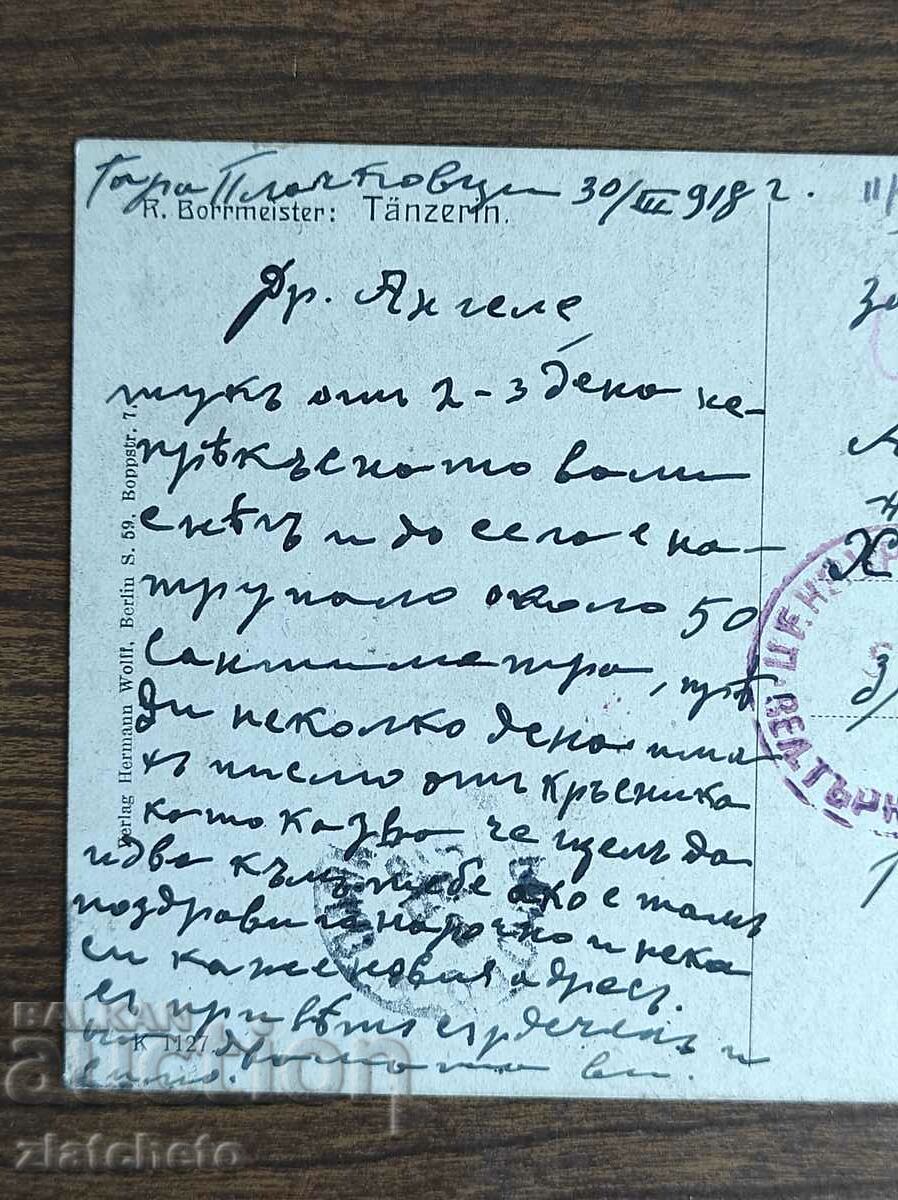 Гара Плачковци 30/III 918 г.
R. Borrmeister: Tänzerin.
Др. Ангеле
тукъ отъ 2-3 дена не-
прѣкъснато вали
снѣгъ и до сега е на-
трупало около 50
сантиметра, прѣ
ди неколко дена има
хъ писмо отъ кръсника
като казва че щелъ да
идва къмъ тебе ако е тамъ
поздрави го нарочно и нека
си каже новия адресъ.
съ привѣтъ сърдеченъ и
ви.
Verlag Hermann Wolff, Berlin S. 59, Boppstr. 7.
K 1127
ЦЕНЗУР
ТЪРН
BALKAN
auction
zlatcheto